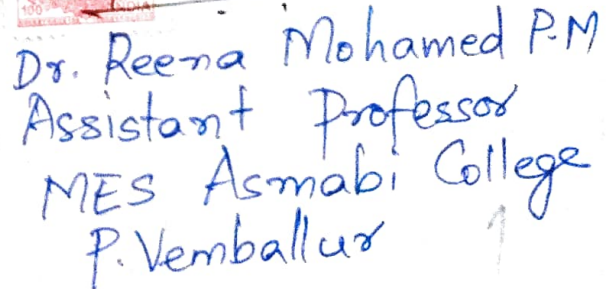 100 INDIA
Dr. Reena Mohamed P.M
Assistant Professor
MES Asmabi College
P. Vemballur